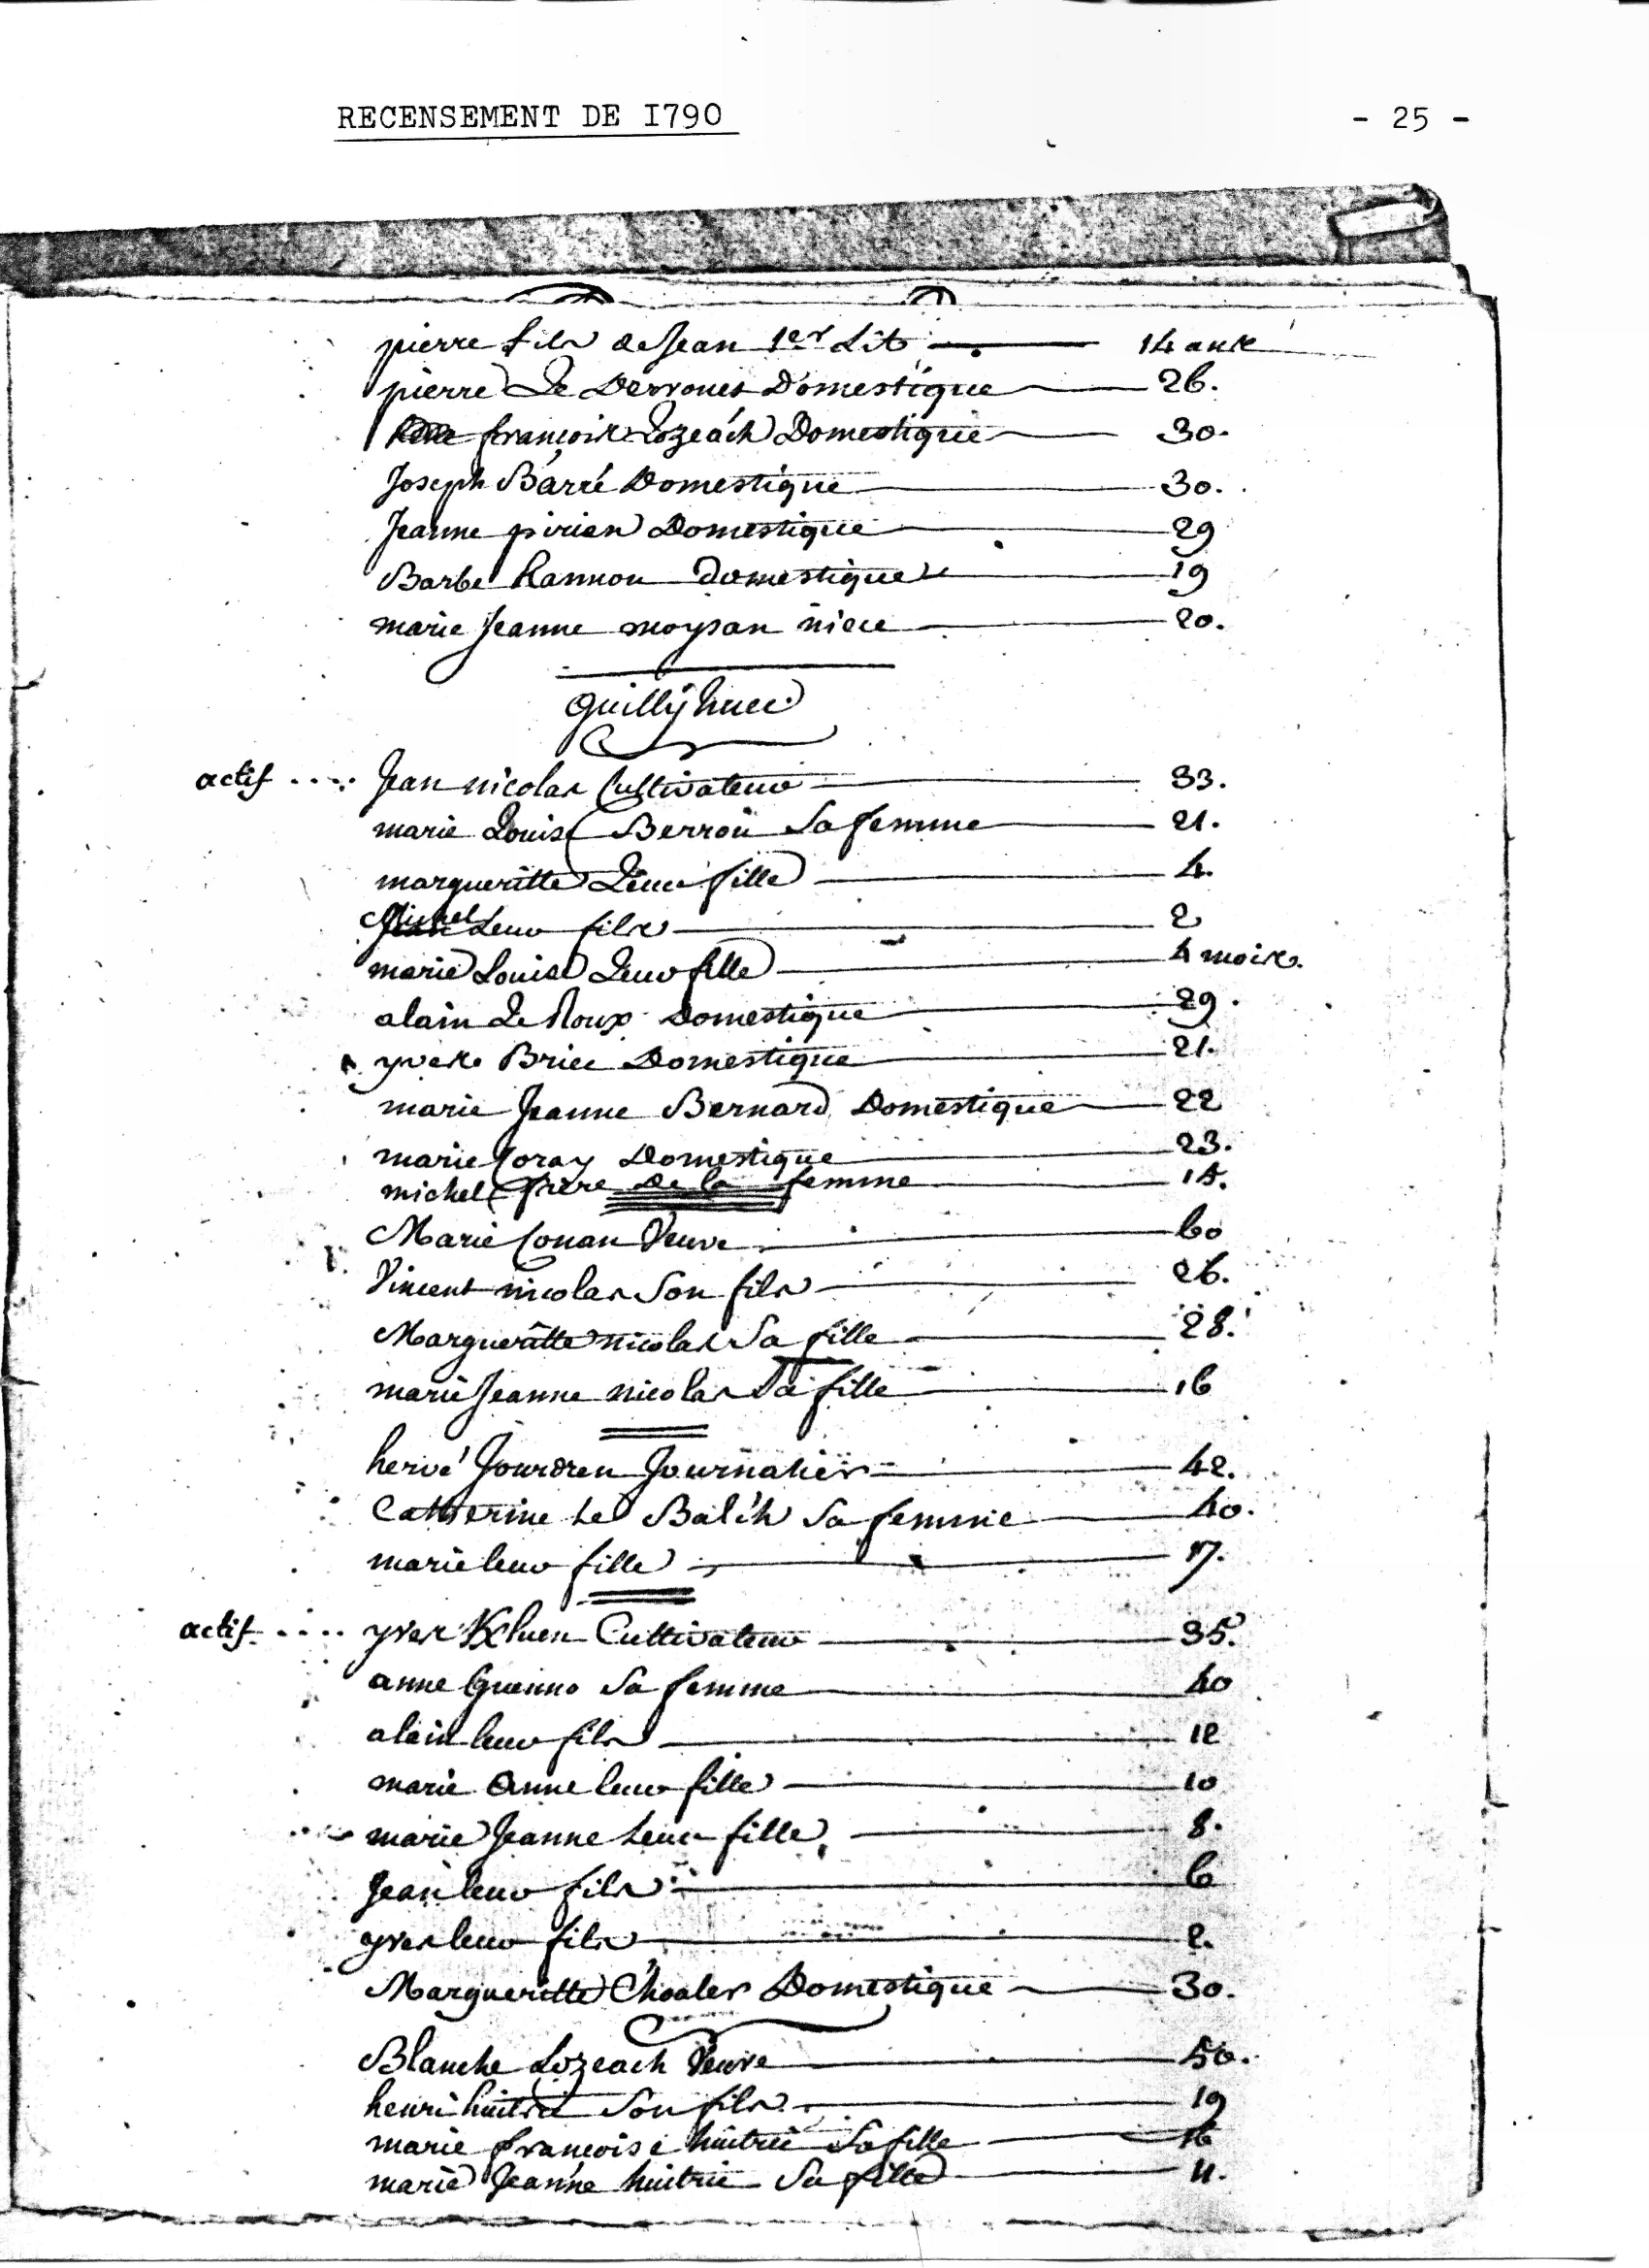 RECENSEMENT DE I790 - 25 -
pierre fils de Jean 1er Lit 14 ans
pierre Le Derrouet Domestique 26.
françois Lozeach Domestique 30.
Joseph Barré Domestique 30.
Jeanne pirien Domestique 29
Barbe hannon domestique 19
marie Jeanne moysan niece 20.
quillÿhuec
actif .... Jean nicolas Cultivateur 33.
marie Louise Berrou Sa femme 21.
margueritte Leur fille 4.
Michel Leur fils 2
marie Louise Leur fille 4 mois.
alain Le Roux Domestique 29.
yves Briec Domestique 21.
marie Jeanne Bernard Domestique 22
marie Coray Domestique 23.
michel frere de la femme 15.
Marie Conan Veuve 60
Vincent nicolas Son fils 26.
Margueritte nicolas Sa fille 28.
marie Jeanne nicolas Sa fille 16
hervé Jourdren Journalier 42.
Catherine Le Balc'h Sa femme 40.
marie leur fille 17.
actif .... yves Kluen Cultivateur 35.
anne Guenno Sa femme 40
alain leur fils 12
marie anne leur fille 10
marie Jeanne Leur fille 8.
Jean leur fils 6
yves leur fils 2.
Margueritte C'hoaler Domestique 30.
Blanche Lozeach Veuve 50.
henri huitric Son fils 19
marie françoise huitric Sa fille 16
marie Jeanne huitric Sa fille 11.